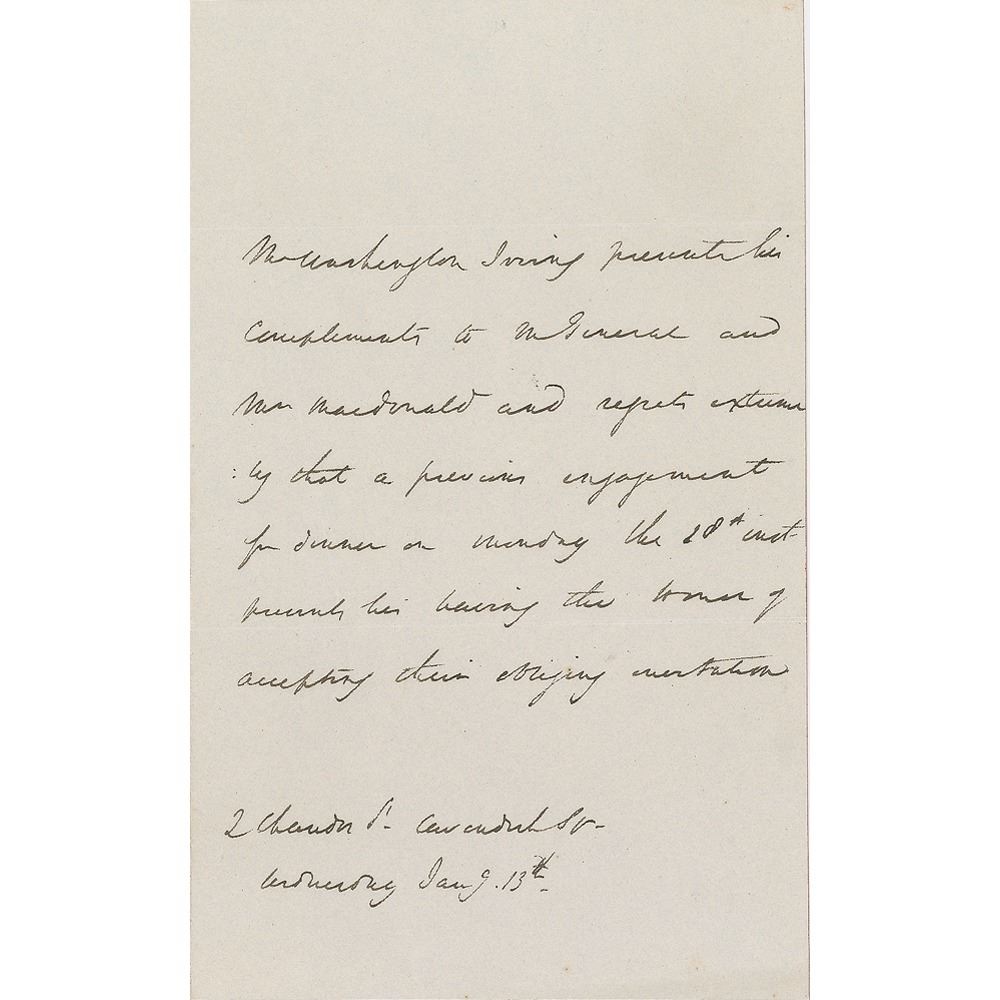 Mr Washington Irving presents his
compliments to M General and
Mrs Macdonald and regrets extreme
:ly that a previous engagement
for dinner on Monday the 28th inst
prevents his having the honor of
accepting their obliging invitation
2 Chandos St. Cavendish Sqr.
Wednesday Jany. 13th.